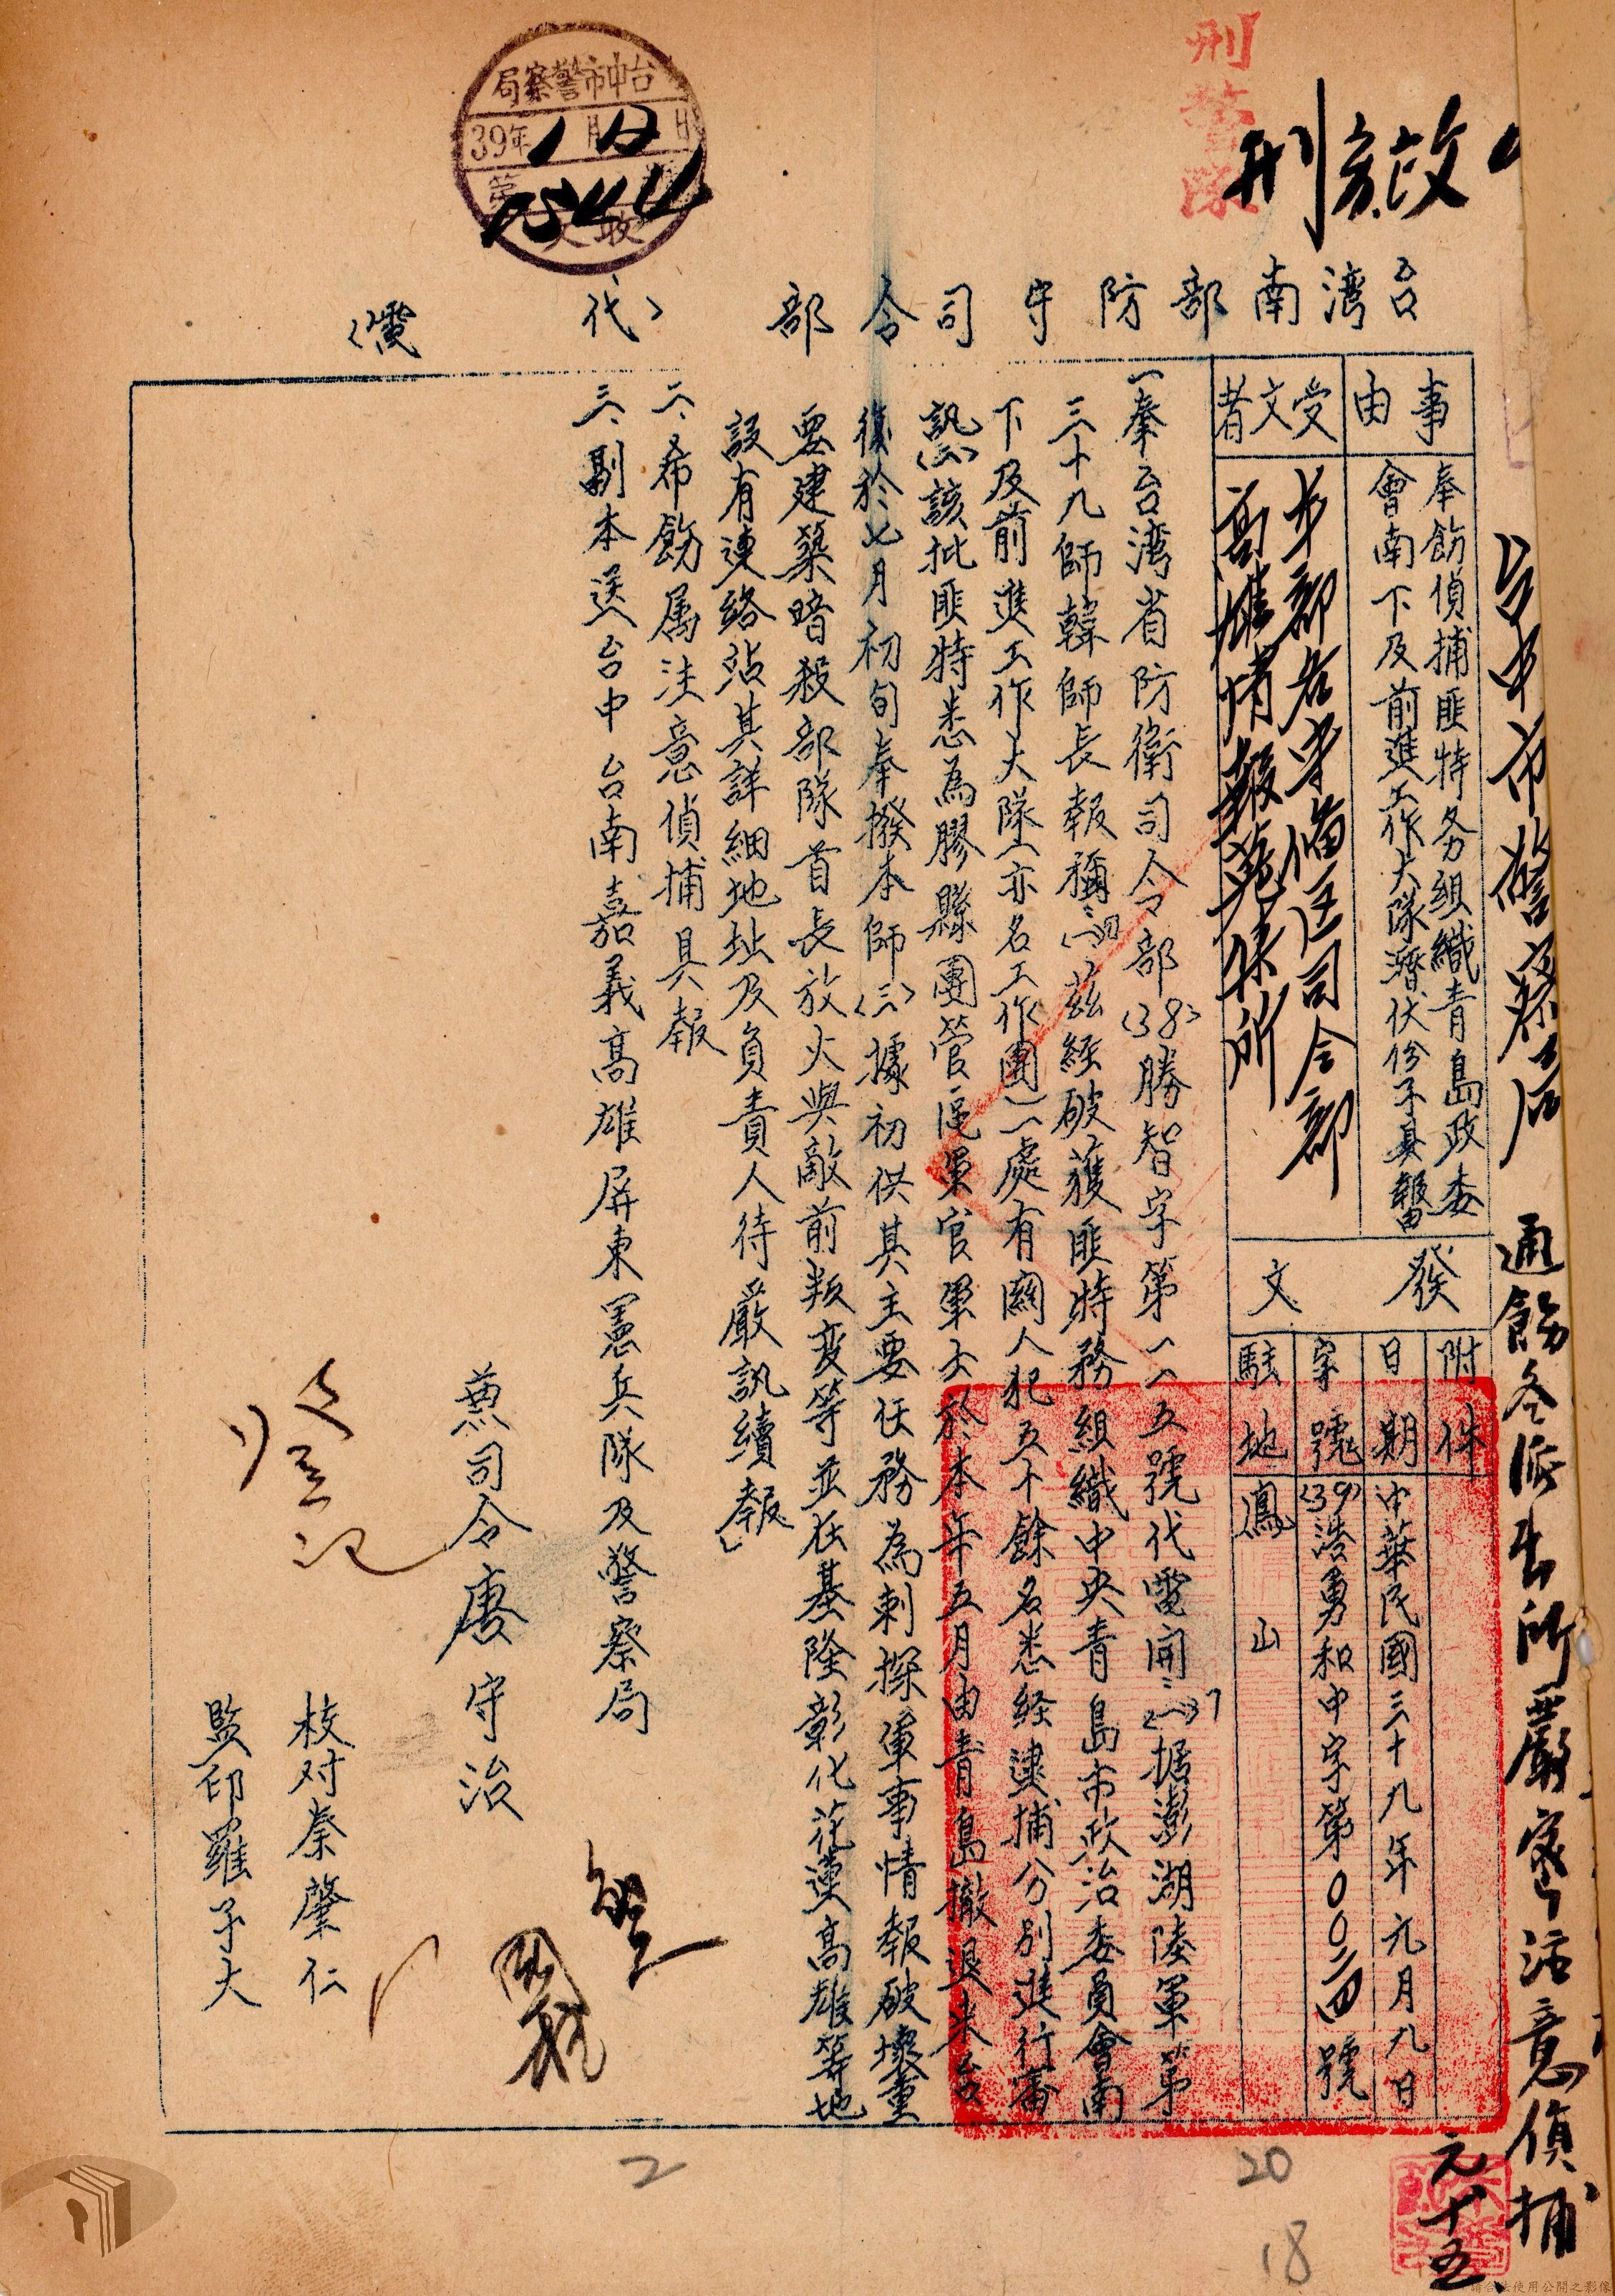 刑警隊
台灣南部防守司令部
代
電
台中市警察局
39年
事由
奉飭偵捕匪特务組織青島政委
會南下及前進工作大隊潛伏份子具報由
受文者
高雄情報蒐集所
發文
附件
日期
中華民國三十九年元月九日
字號
(39)浩勇和中字第00二四號
駐地
鳳山
一奉台湾省防衛司令部(38)勝智字第一一五號代電開(一)据澎湖陸軍第
三十九師韓師長報稱(一)茲經破獲匪特務組織中央青島市政治委員會南
下及前進工作大隊(亦名工作團)一處有關人犯五十餘名悉経逮捕分別進行審
訊(二)該批匪特悉為膠縣團管區軍官軍士於本年五月由青島撤退来台
後於七月初旬奉撥本師(三)據初供其主要任務為刺探軍事情報破壞重
要建築暗殺部隊首長放火與敵前叛变等並在基隆彰化花蓮高雄等地
設有連絡站其詳細地址及負責人待嚴訊續報」
二、希飭属注意偵捕具報
三、副本送台中台南嘉義高雄屏東憲兵隊及警察局
兼司令唐守治
校对秦肇仁
監印羅子大
登记
通飭各派出所嚴密注意偵捕
元十五
2
20
18